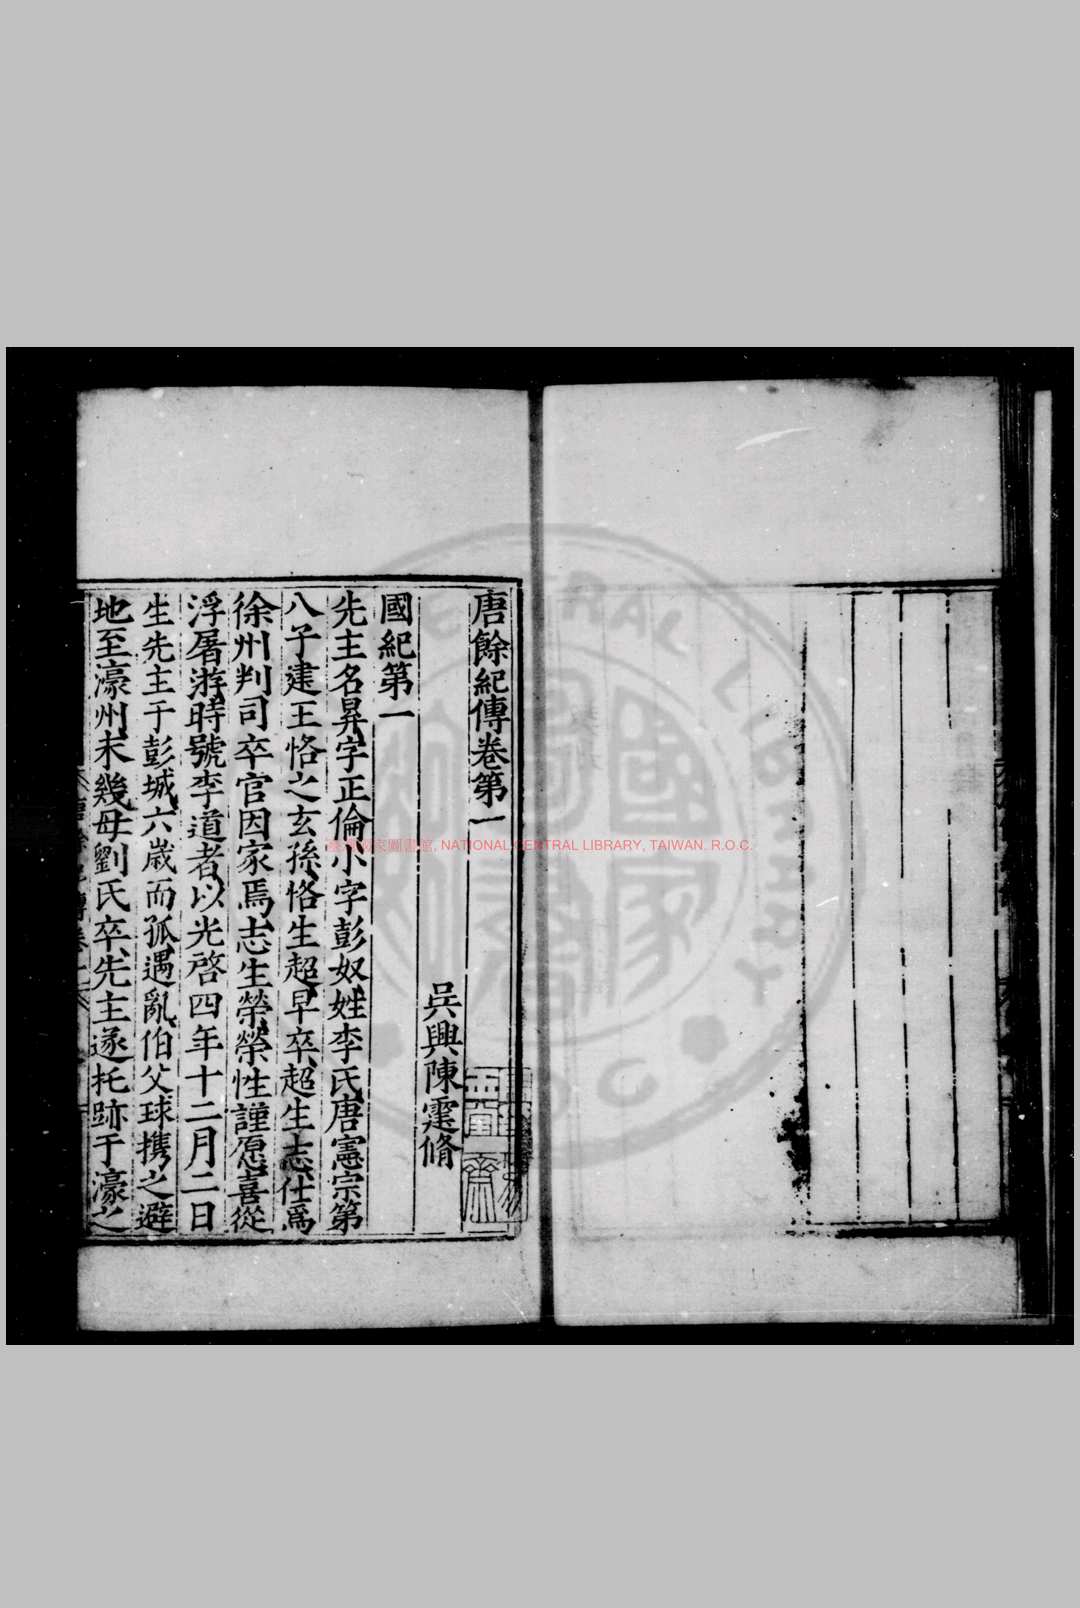 唐餘紀傳卷第一
吳興陳霆脩
國紀第一
先主名昪字正倫小字彭奴姓李氏唐憲宗第
八子建王恪之玄孫恪生超早卒超生志仕爲
徐州判司卒官因家焉志生榮榮性謹愿喜從
浮屠游時號李道者以光啓四年十二月二日
生先主于彭城六歲而孤遇亂伯父球携之避
地至濠州未幾母劉氏卒先主遂托跡于濠之
臺灣國家圖書館, NATIONAL CENTRAL LIBRARY, TAIWAN. R.O.C.